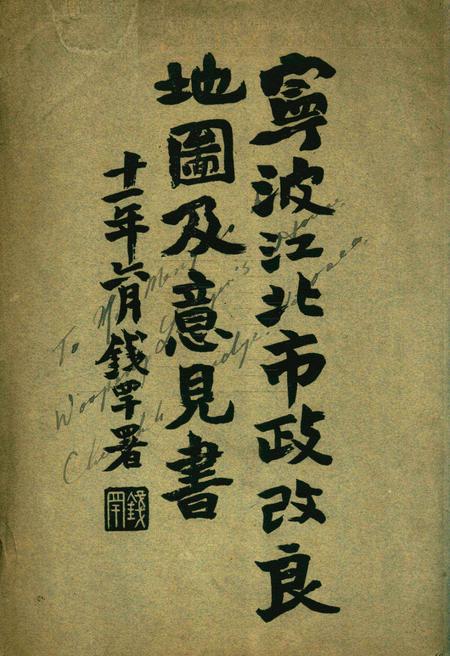 寧波江北市政改良
地圖及意見書
十一年六月錢罕署
錢罕
To